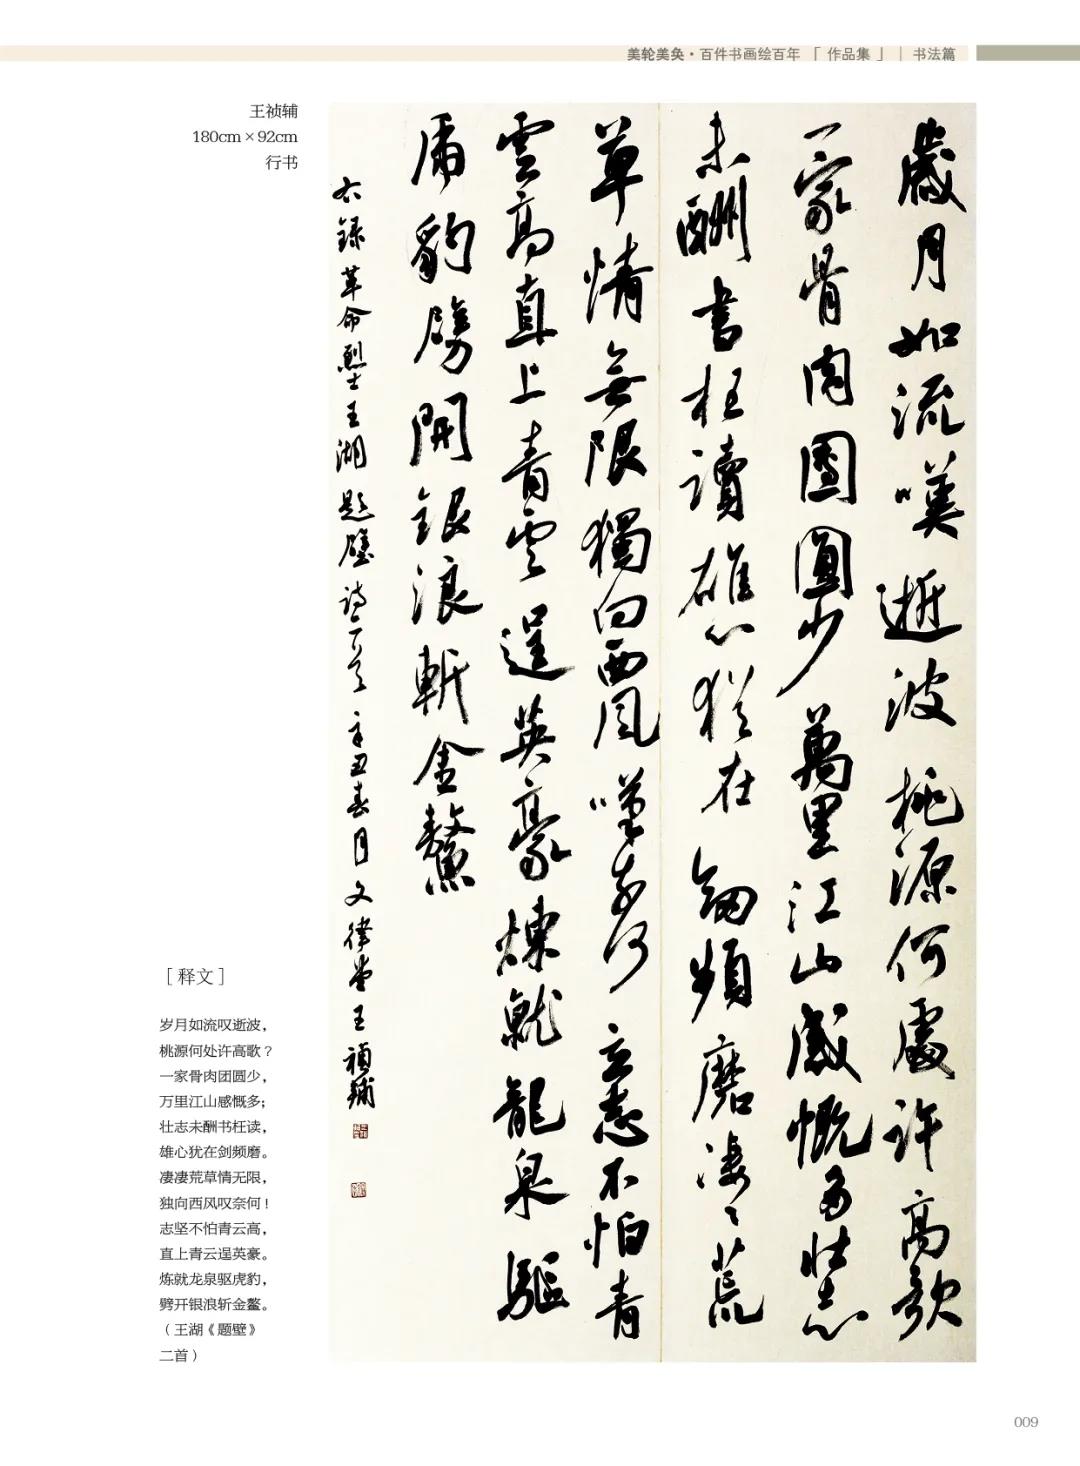 美轮美奂·百件书画绘百年「作品集」｜书法篇
王祯辅
180cm×92cm
行书
歲月如流嘆逝波桃源何處許高歌
一家骨肉團圓少萬里江山感慨多壯志
未酬書枉讀雄心猶在劍頻磨凄々荒
草情無限獨向西風嘆奈何 志不怕青
雲高直上青雲逞英豪煉就龍泉驅
虎豹劈開銀浪斬金鰲
右錄革命烈士王湖題壁詩二首辛丑春月文律堂王禎輔
［释文］
岁月如流叹逝波，
桃源何处许高歌？
一家骨肉团圆少，
万里江山感慨多；
壮志未酬书枉读，
雄心犹在剑频磨。
凄凄荒草情无限，
独向西风叹奈何！
志坚不怕青云高，
直上青云逞英豪。
炼就龙泉驱虎豹，
劈开银浪斩金鳌。
（王湖《题壁》
二首）
009